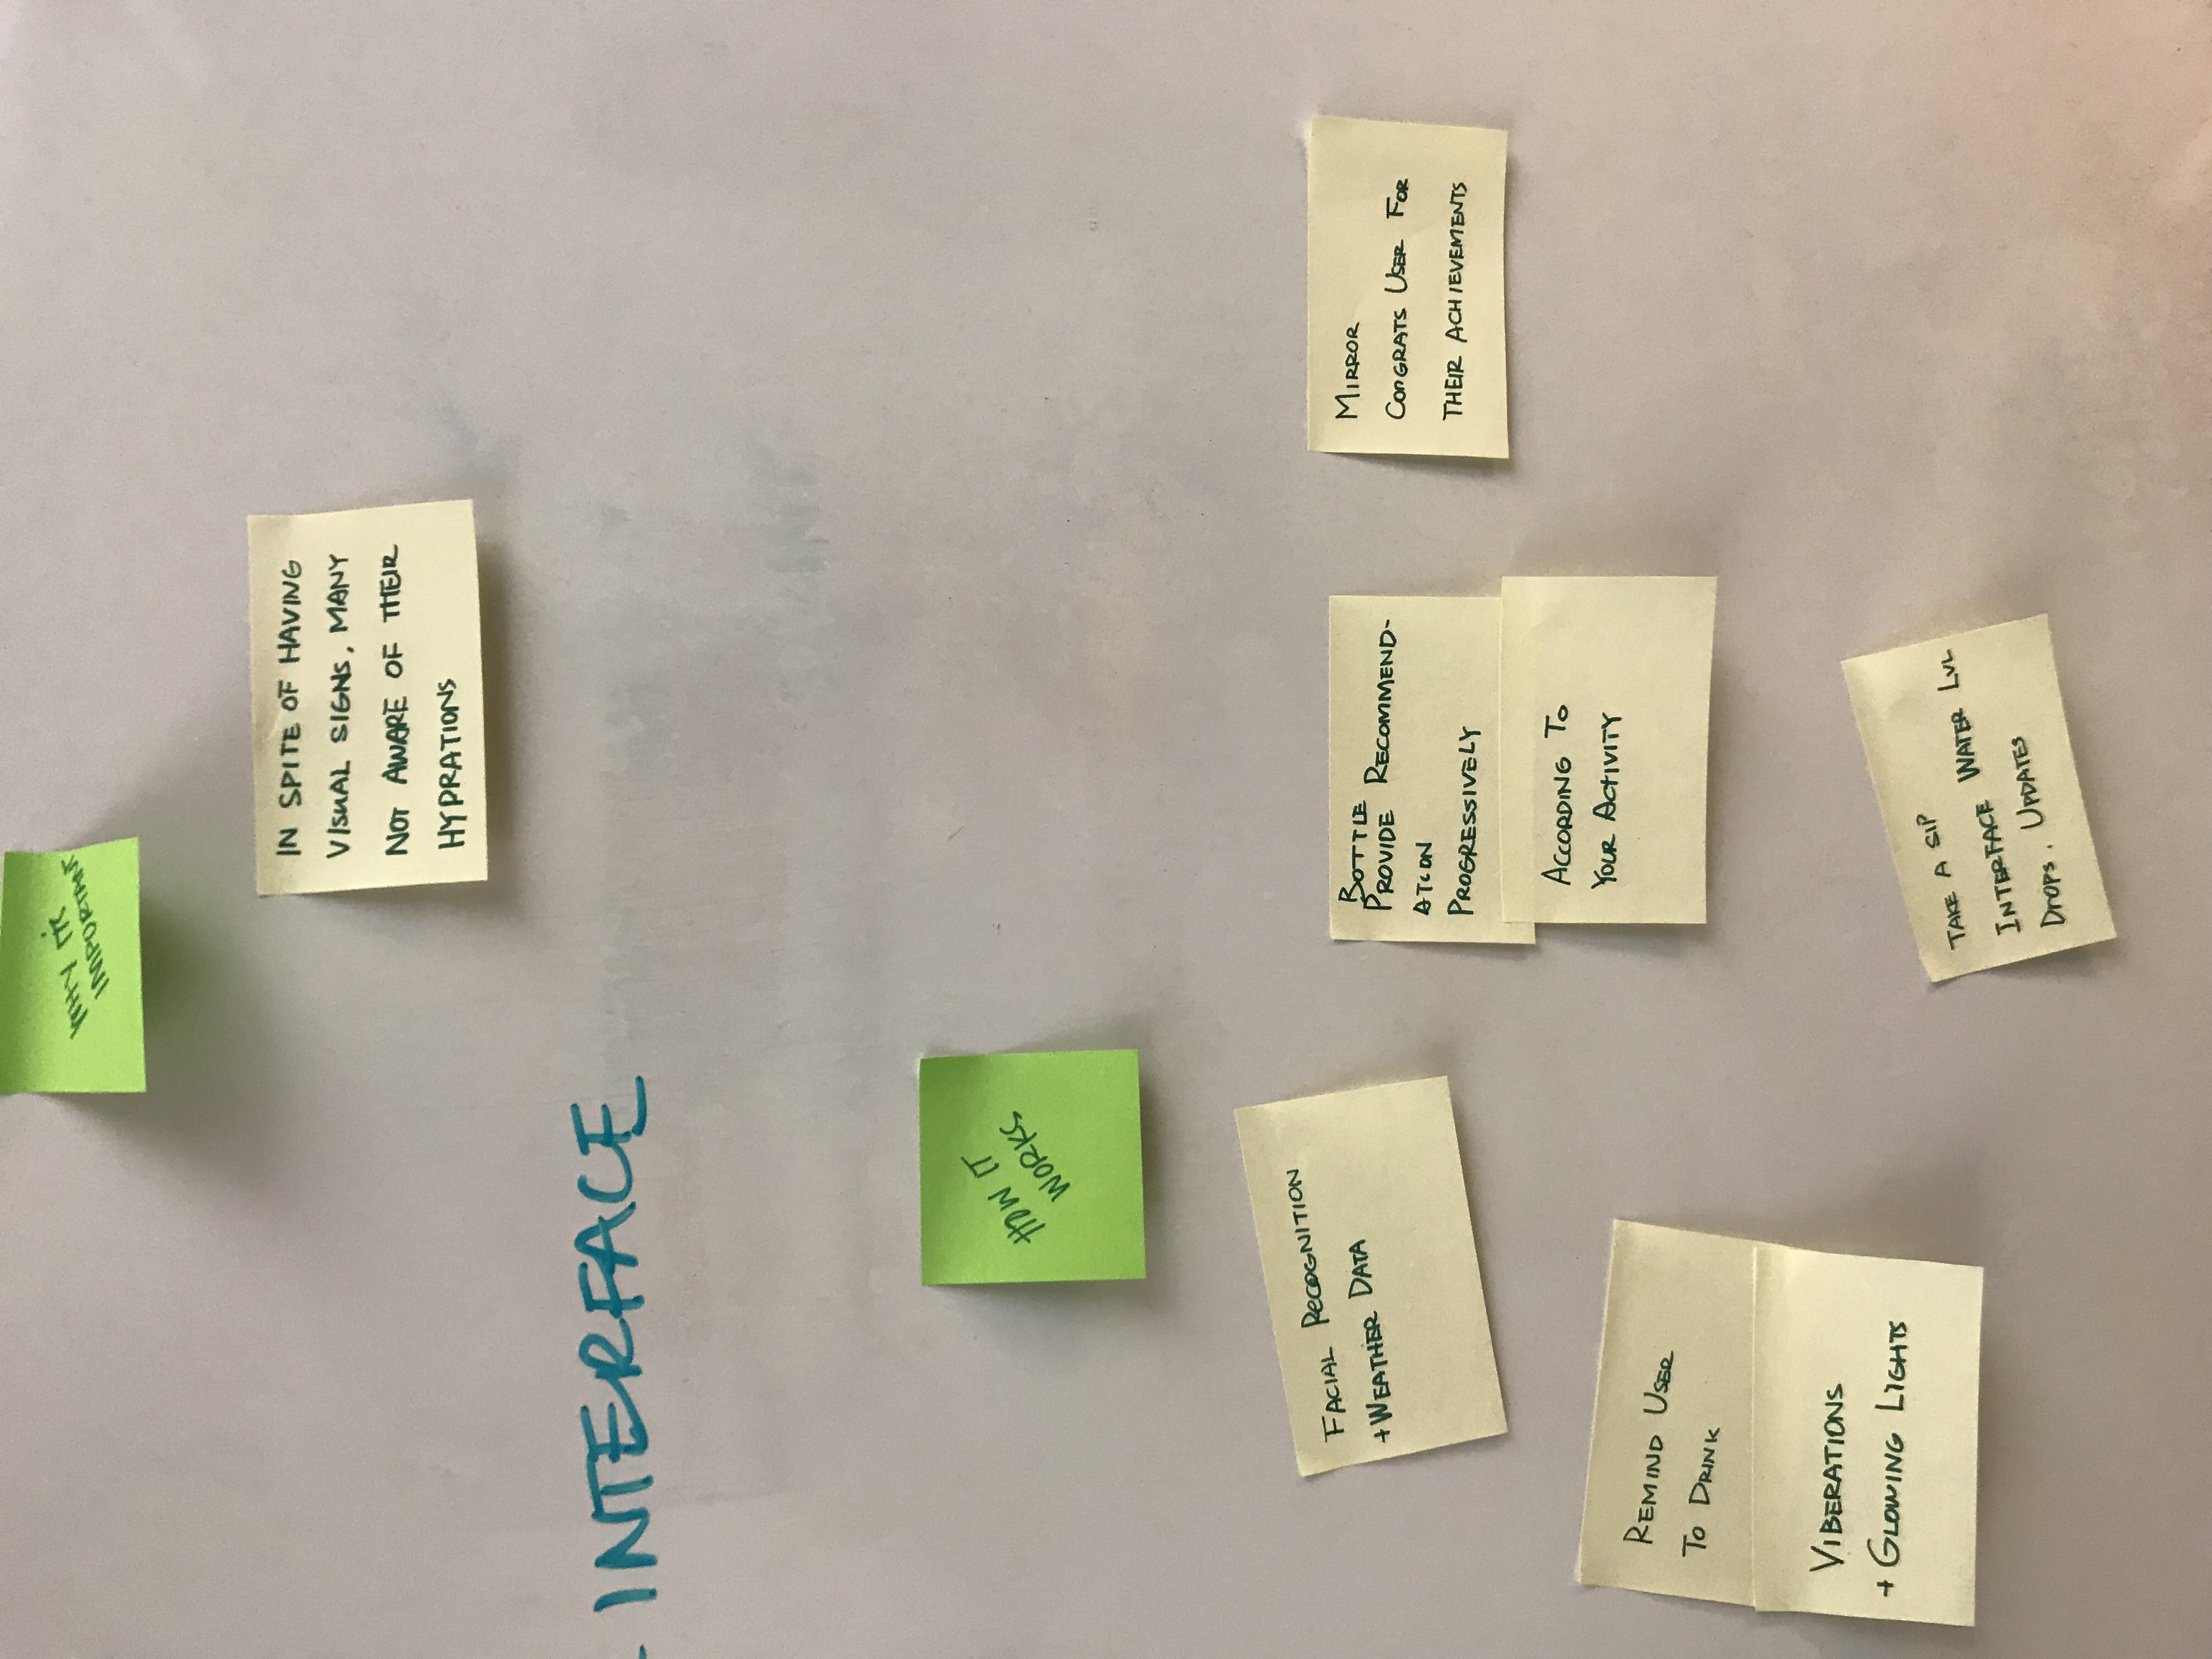 WHY IT'S
IMPORTANT
IN SPITE OF HAVING
VISUAL SIGNS, MANY
NOT AWARE OF THEIR
HYDRATIONS
- INTERFACE
HOW IT
WORKS
FACIAL RECOGNITION
+ WEATHER DATA
BOTTLE
PROVIDE RECOMMEND-
ATION
PROGRESSIVELY
ACCORDING TO
YOUR ACTIVITY
MIRROR
CONGRATS USER FOR
THEIR ACHIEVEMENTS
REMIND USER
TO DRINK
VIBERATIONS
+ GLOWING LIGHTS
TAKE A SIP
INTERFACE WATER LVL
DROPS, UPDATES